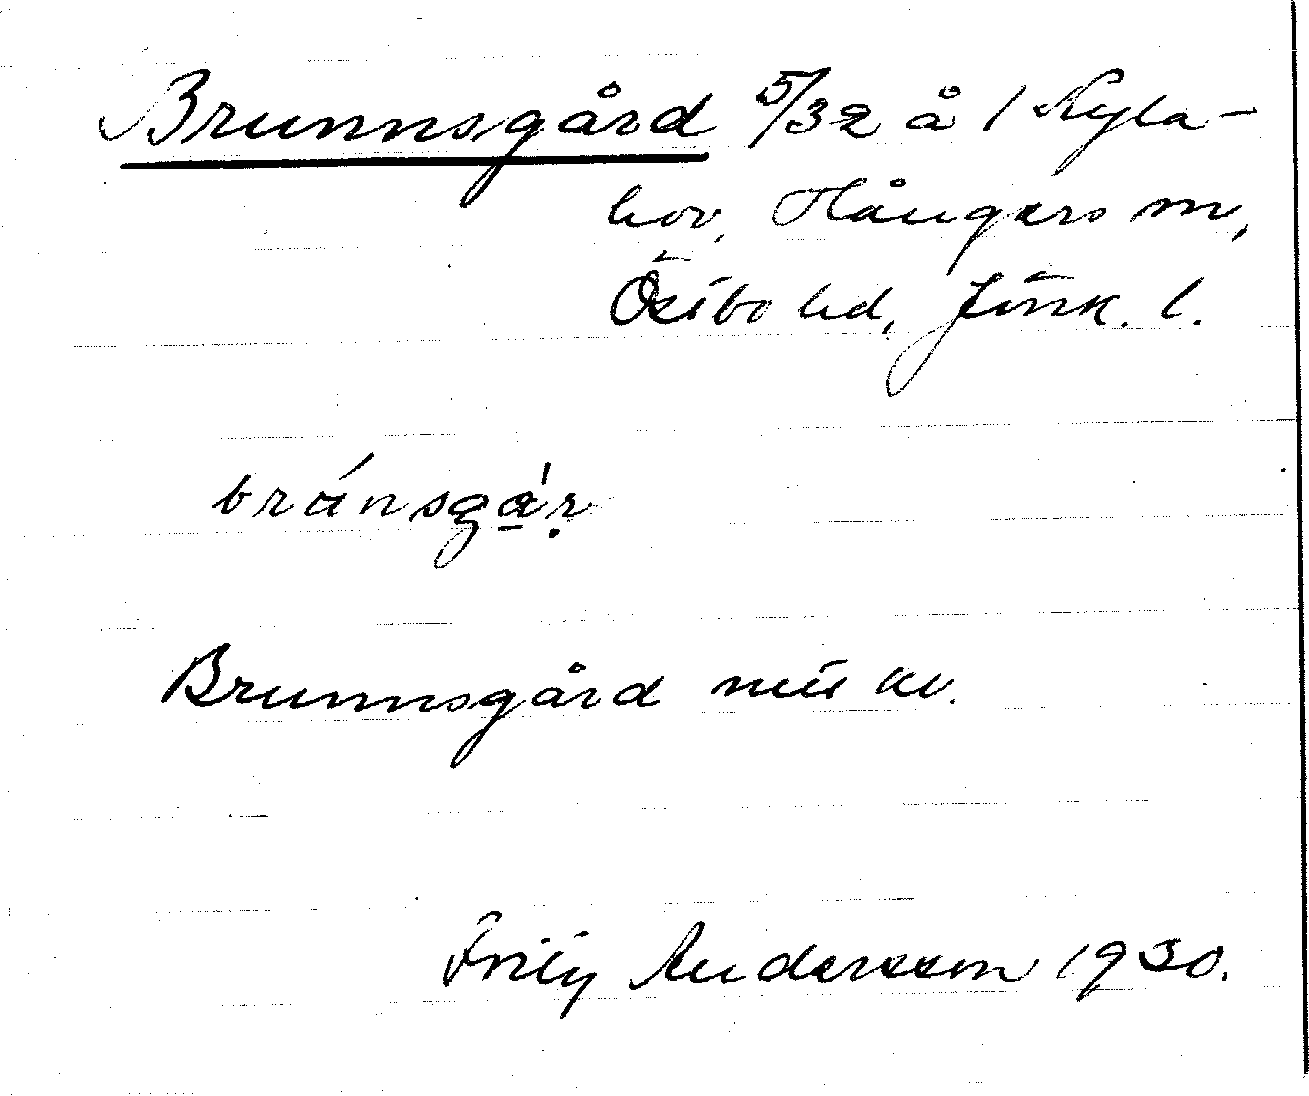 Brunnsgård 5/32 å 1 Nyla-
hov, Hångers sn,
Östbo hd, Jönk. l.
bránsgá̱ṛ
Brunnsgård
Andersson 1930.